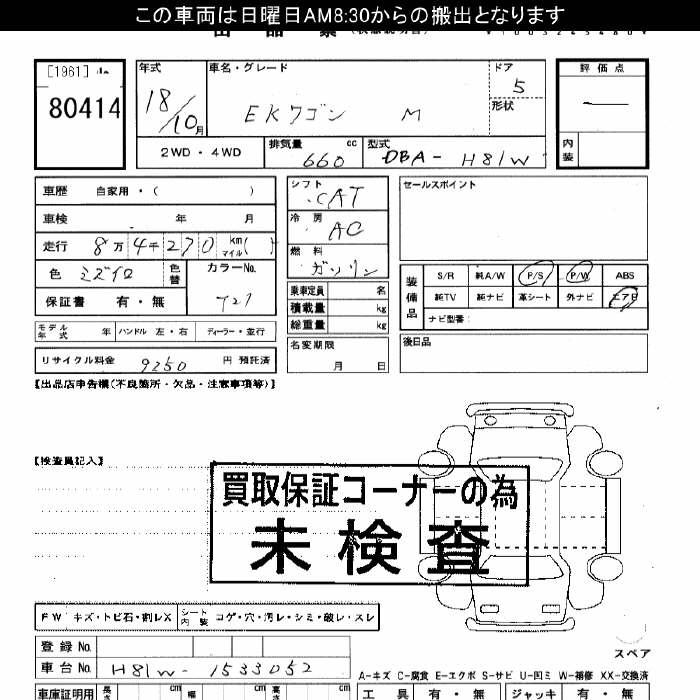 この車両は日曜日AM8:30からの搬出となります
[1961]
80414
年式
18/10月
車名・グレード
EKワゴン M
ドア
5
形状
評価点
内装
2WD ・ 4WD
排気量 cc
660
型式
DBA-H81W
車歴 自家用・( )
車検 年 月
走行 8万4千270km マイル( )
色 ミズイロ
色替
カラーNo.
T21
保証書 有・無
シフト
CAT
冷房
AC
燃料
ガソリン
乗車定員 名
積載量 kg
総重量 kg
セールスポイント
装備品
S/R 純A/W P/S P/W ABS
純TV 純ナビ 革シート 外ナビ エアB
ナビ型番:
モデル年式 年 ハンドル 左・右 ディーラー・並行
リサイクル料金 9250 円 預託済
名変期限
月 日
後日品
【出品店申告欄(不良箇所・欠品・注意事項等)】
【検査員記入】
買取保証コーナーの為
未検査
FW キズ・トビ石・割レX
シート内装 コゲ・穴・汚レ・シミ・破レ・スレ
登録No.
車台No. H81W-1533052
スペア
A-キズ C-腐食 E-エクボ S-サビ U-凹ミ W-補修 XX-交換済
車庫証明用 長さ cm 幅 cm 高さ cm
工具 有・無
ジャッキ 有・無